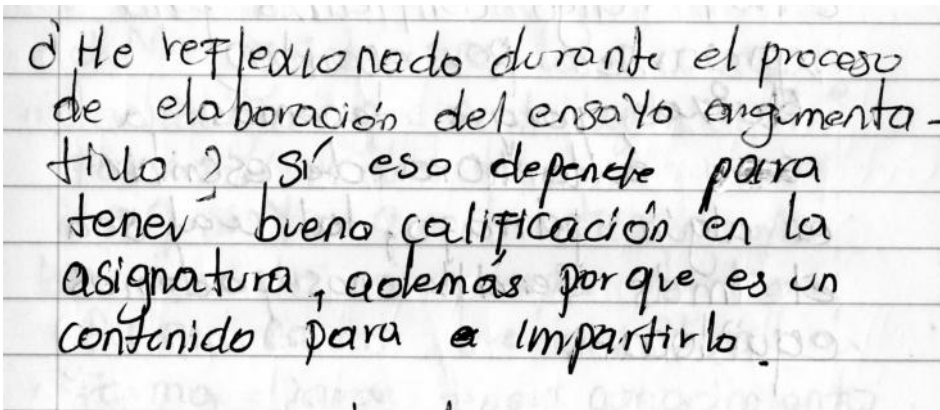 ¿He reflexionado durante el proceso
de elaboración del ensayo argumenta-
tivo? Sí eso depende para
tener bueno calificación en la
asignatura, además por que es un
contenido para a impartirlo.